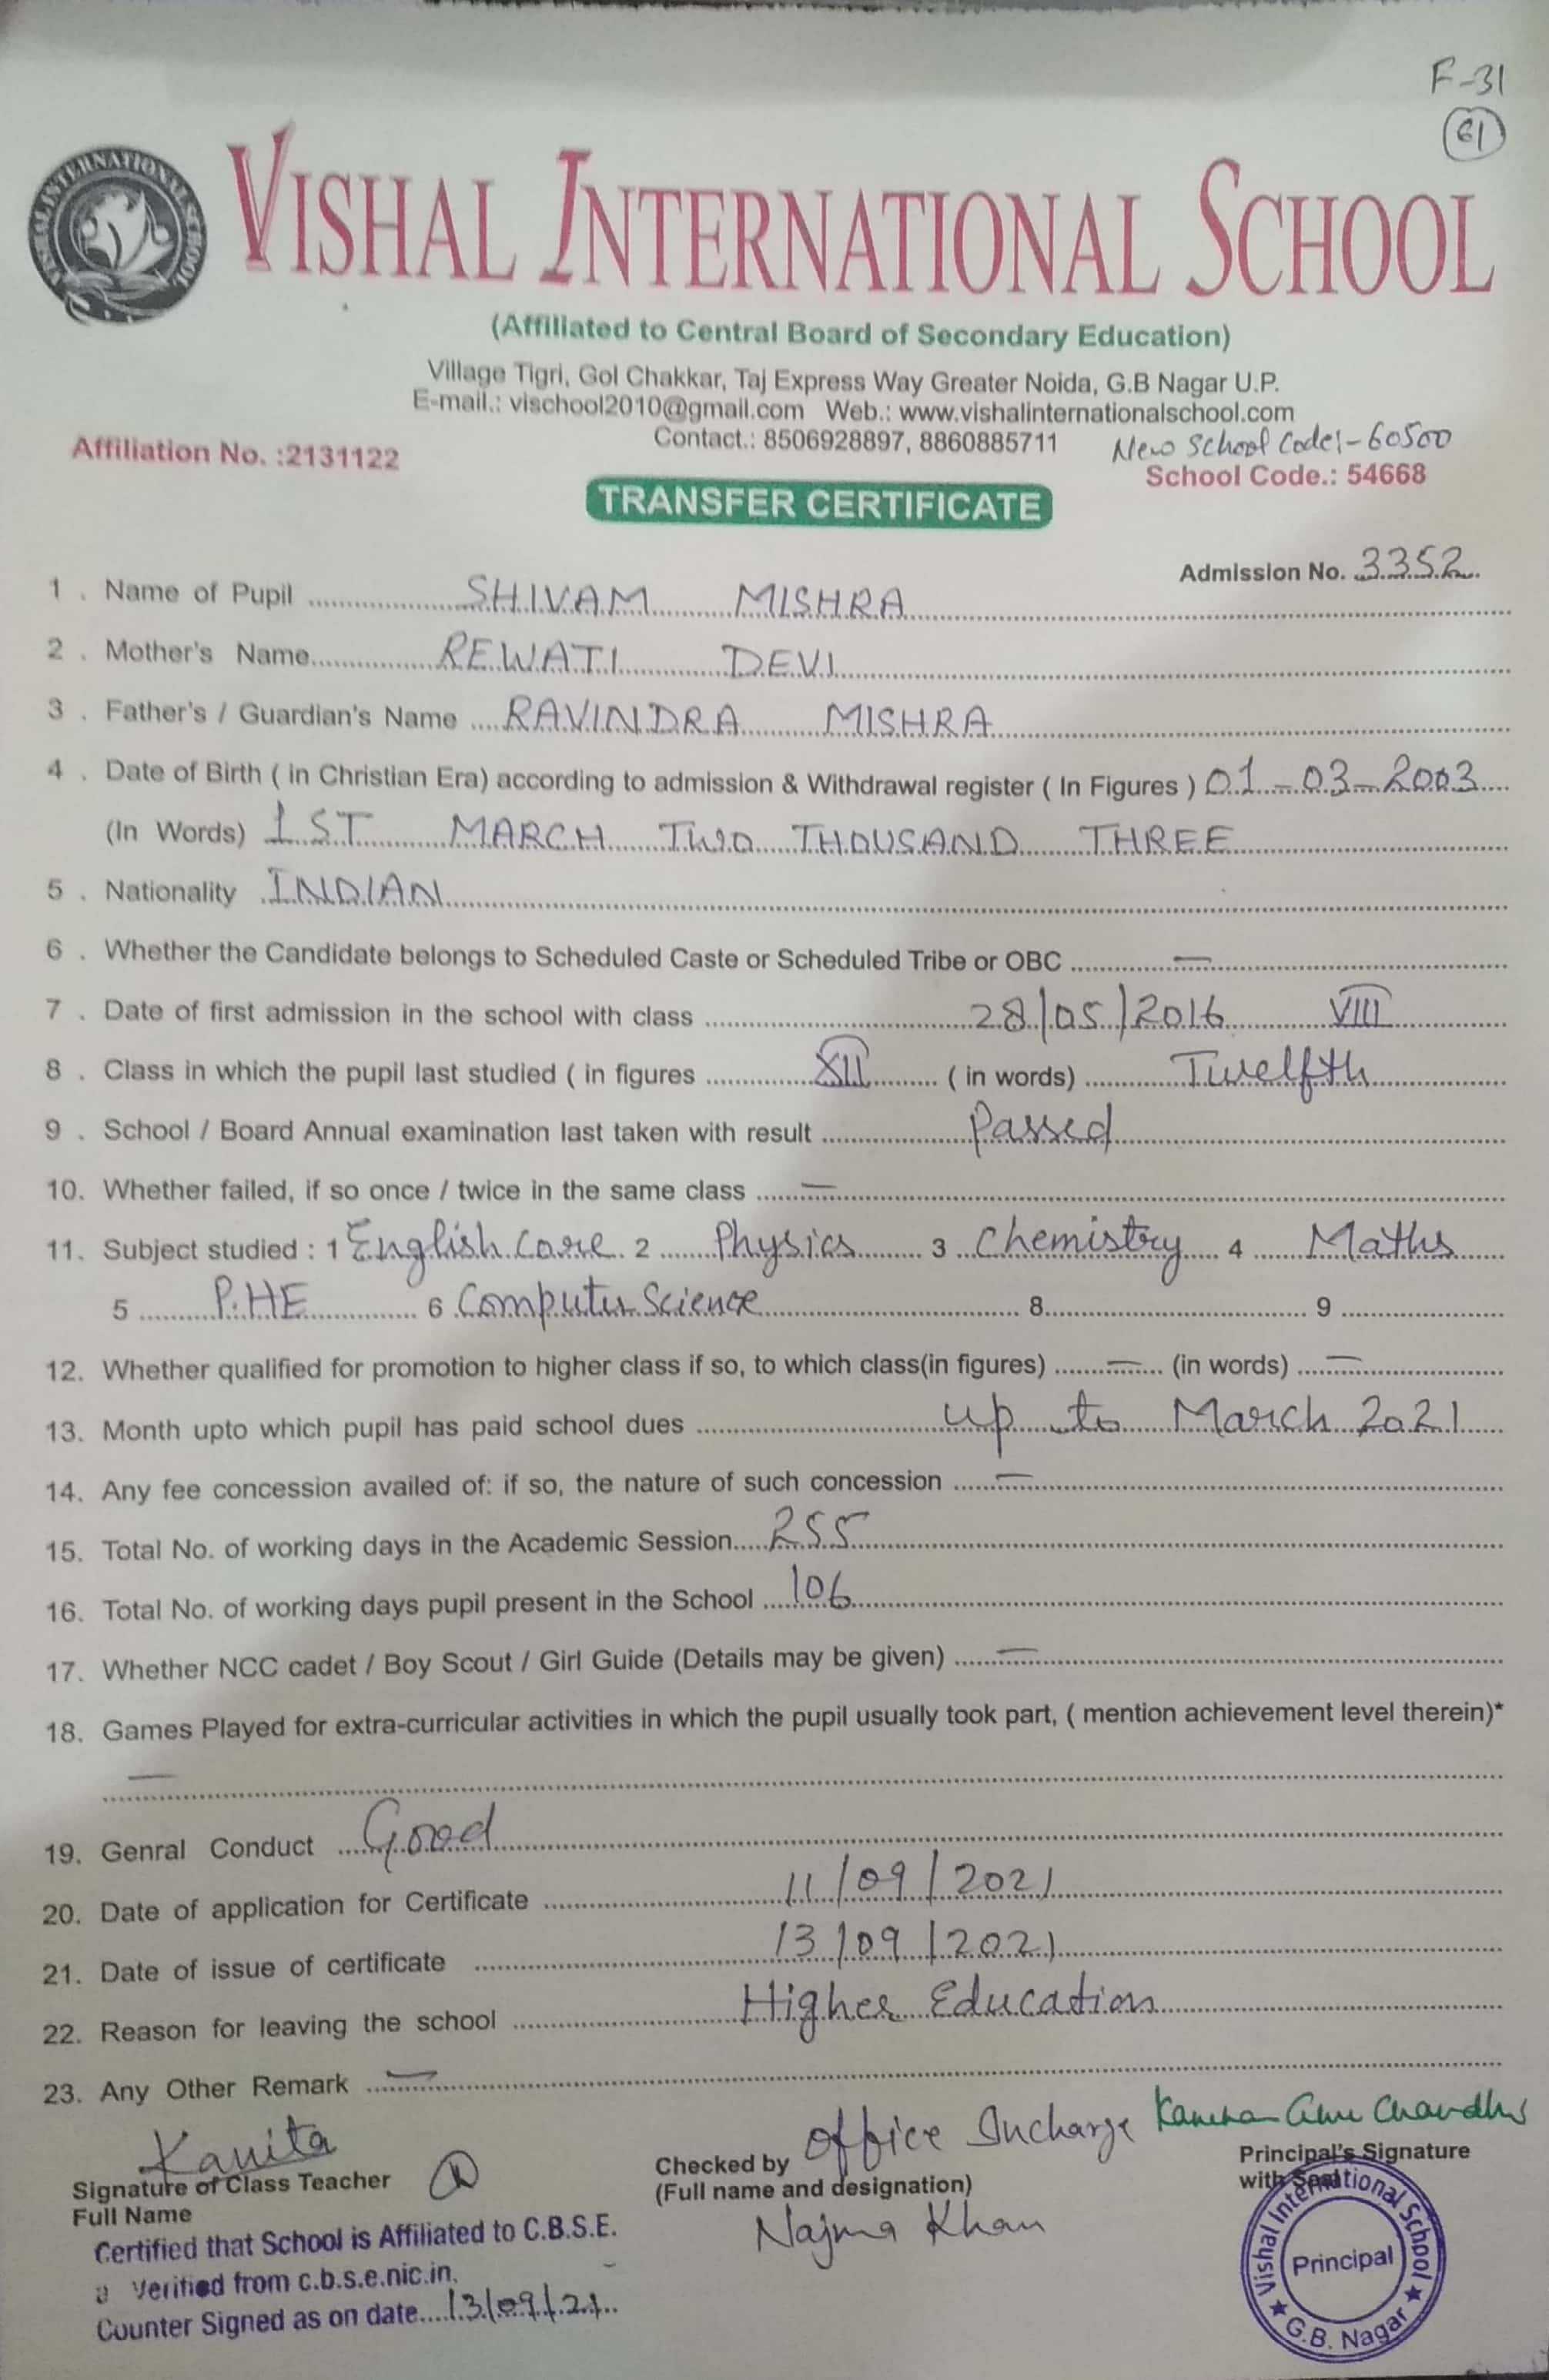 F-31
61
VISHAL INTERNATIONAL SCHOOL
VISHAL INTERNATIONAL SCHOOL
(Affiliated to Central Board of Secondary Education)
Village Tigri, Gol Chakkar, Taj Express Way Greater Noida, G.B Nagar U.P.
E-mail.: vischool2010@gmail.com Web.: www.vishalinternationalschool.com
Contact.: 8506928897, 8860885711 New School Code:-60500
Affiliation No. :2131122 School Code.: 54668
TRANSFER CERTIFICATE
Admission No. 3352
1 . Name of Pupil SHIVAM MISHRA
2 . Mother's Name REWATI DEVI
3 . Father's / Guardian's Name RAVINDRA MISHRA
4 . Date of Birth ( in Christian Era) according to admission & Withdrawal register ( In Figures ) 01-03-2003
(In Words) 1ST MARCH TWO THOUSAND THREE
5 . Nationality INDIAN
6 . Whether the Candidate belongs to Scheduled Caste or Scheduled Tribe or OBC —
7 . Date of first admission in the school with class 28/05/2016 VIII
8 . Class in which the pupil last studied ( in figures XII ( in words) Twelfth
9 . School / Board Annual examination last taken with result Passed
10. Whether failed, if so once / twice in the same class —
11. Subject studied : 1 English Core 2 Physics 3 Chemistry 4 Maths
5 P.HE 6 Computer Science 8 9
12. Whether qualified for promotion to higher class if so, to which class(in figures) — (in words) —
13. Month upto which pupil has paid school dues up to March 2021
14. Any fee concession availed of: if so, the nature of such concession —
15. Total No. of working days in the Academic Session 255
16. Total No. of working days pupil present in the School 106
17. Whether NCC cadet / Boy Scout / Girl Guide (Details may be given) —
18. Games Played for extra-curricular activities in which the pupil usually took part, ( mention achievement level therein)*
—
19. Genral Conduct Good
20. Date of application for Certificate 11/09/2021
21. Date of issue of certificate 13/09/2021
22. Reason for leaving the school Higher Education
23. Any Other Remark —
Kanita
Signature of Class Teacher
Full Name
Checked by Office Incharge
(Full name and designation)
Najma Khan
Principal's Signature
with Seal
Vishal International School
Principal
G.B. Nagar
Certified that School is Affiliated to C.B.S.E.
Verified from c.b.s.e.nic.in.
Counter Signed as on date....13/09/21..